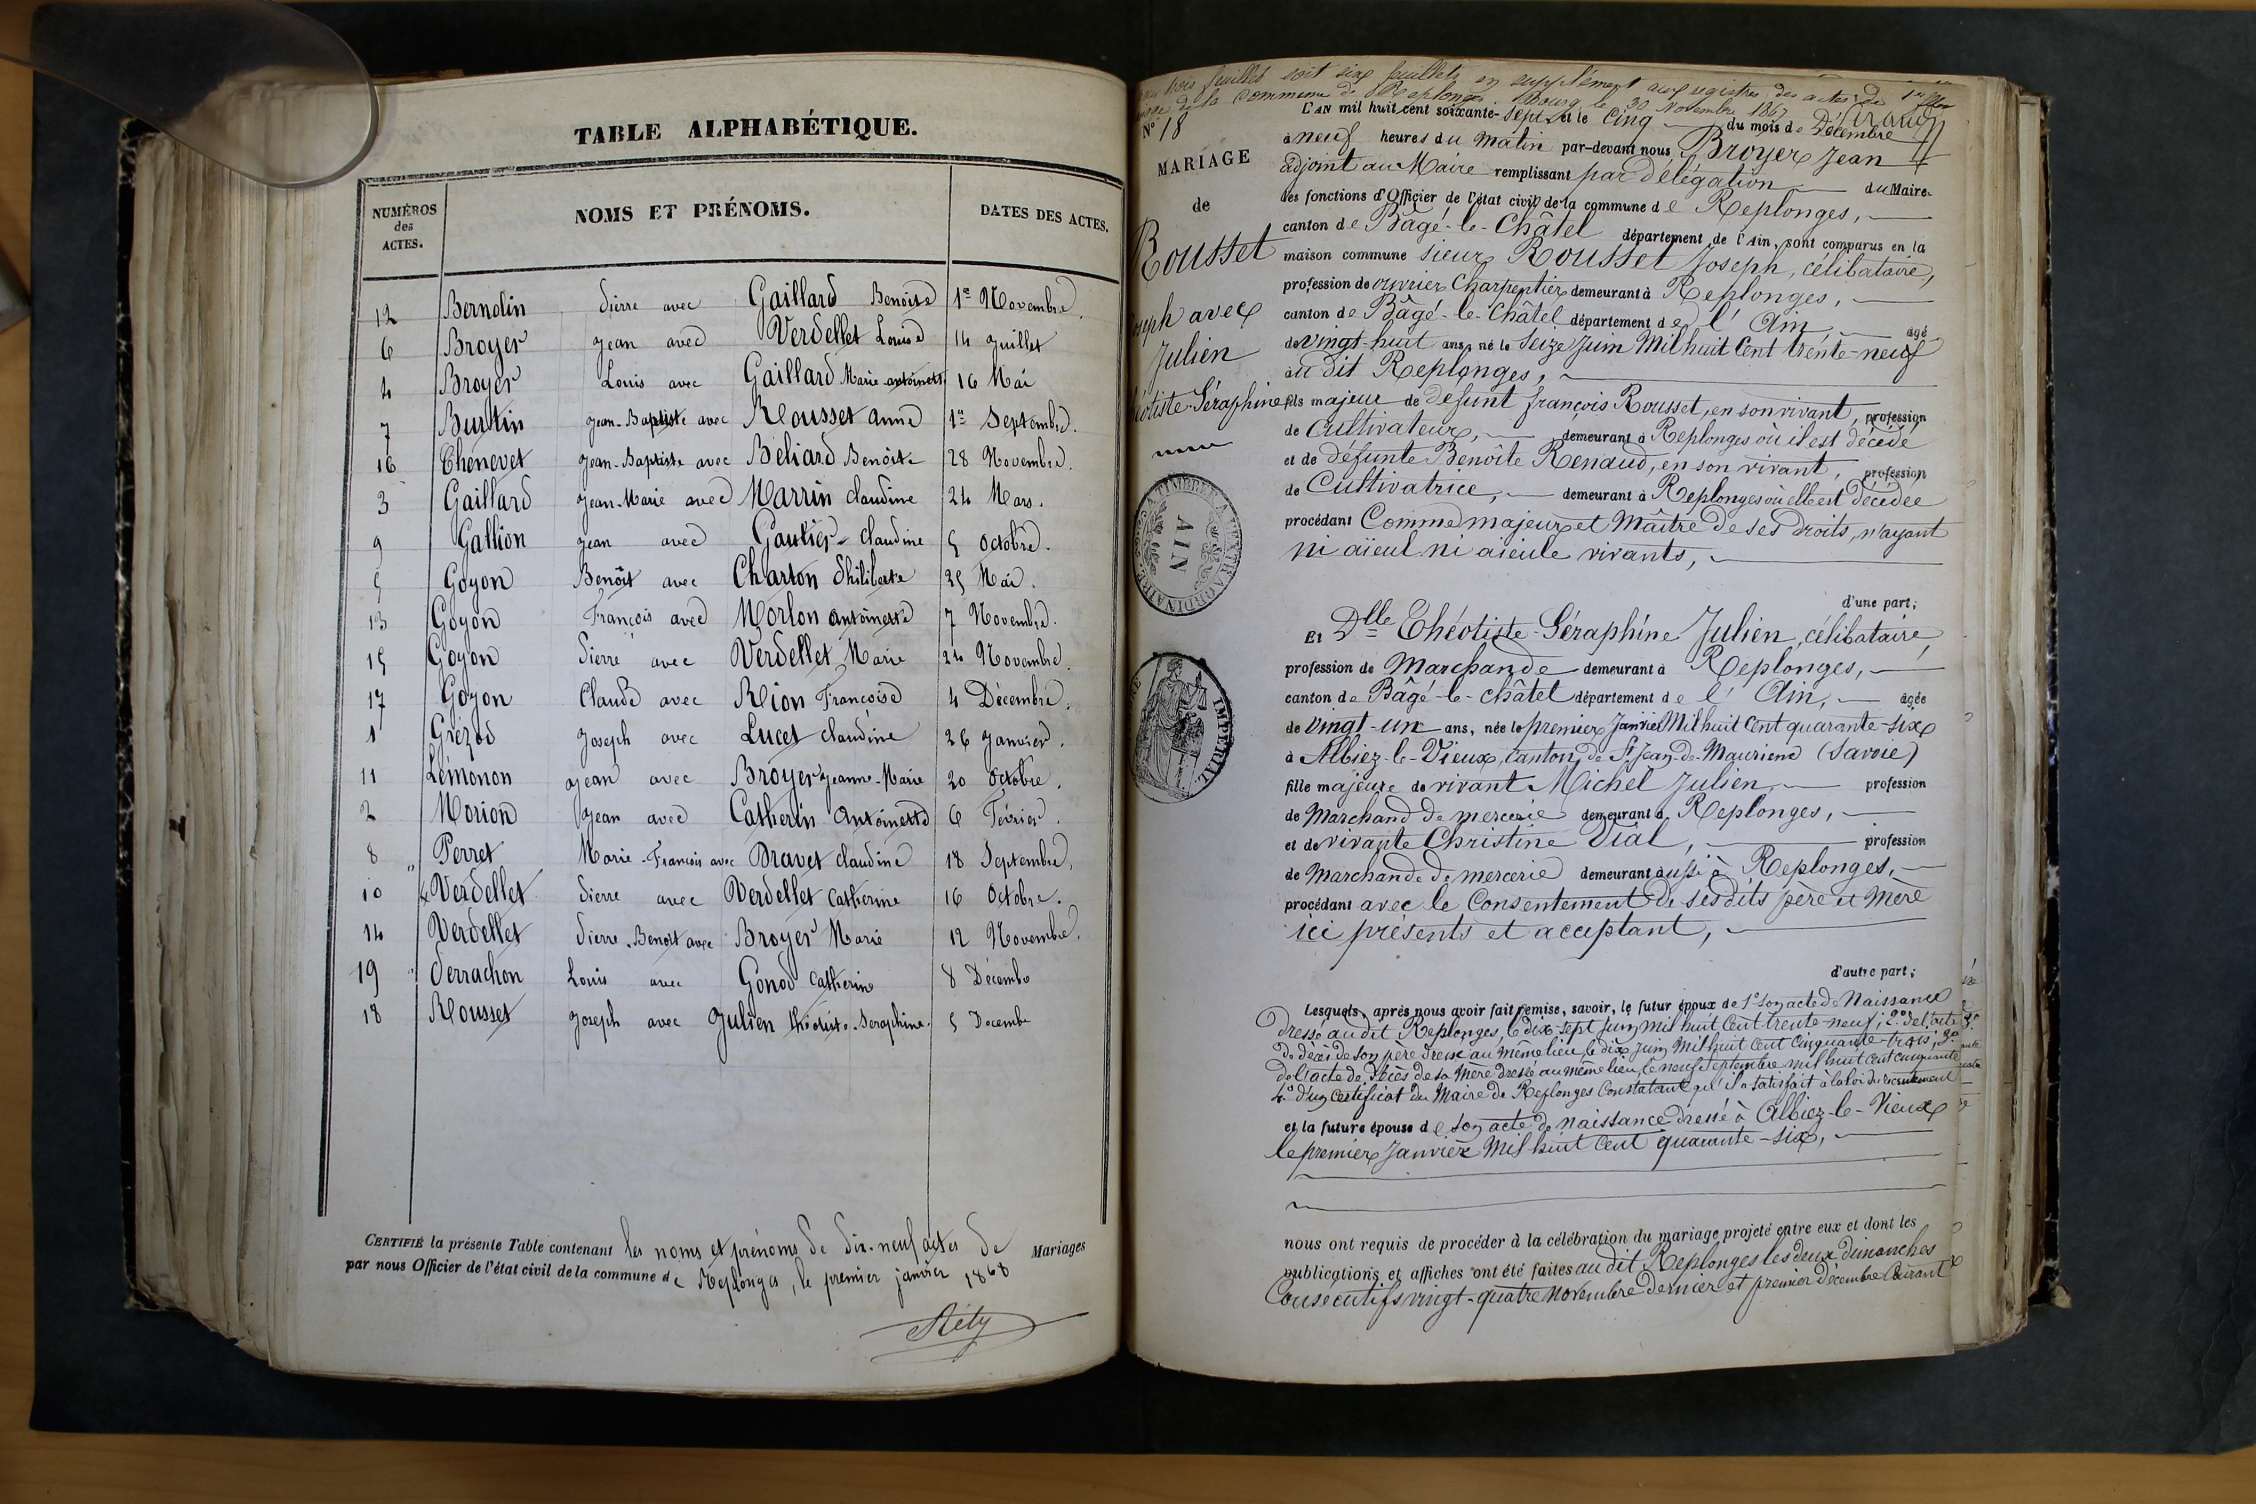 TABLE ALPHABÉTIQUE.
NUMÉROS des ACTES. NOMS ET PRÉNOMS. DATES DES ACTES.
12 Bernolin Pierre avec Gaillard Benoite 1er Novembre.
6 Broyer Jean avec Verdellet Louise 14 Juillet
4 Broyer Louis avec Gaillard Marie-antoinette 16 Mai
7 Burtin Jean-Baptiste avec Rousset Anne 1er Septembre.
16 Chenevet Jean-Baptiste avec Béliard Benoîte 28 Novembre.
3 Gaillard Jean-Marie avec Marrin claudine 24 Mars.
9 Gallion Jean avec Gautier claudine 5 octobre.
5 Goyon Benoît avec Charton Philiberte 25 Mai.
13 Goyon François avec Morlon antoinette 7 Novembre.
15 Goyon Pierre avec Verdellet Marie 24 Novembre.
17 Goyon Claude avec Rion Françoise 4 Décembre.
1 Grézod Joseph avec Lucet claudine 26 Janvier.
11 Lémonon Jean avec Broyer Jeanne-Marie 20 Octobre.
2 Morion Jean avec Catherin Antoinette 6 Février.
8 Perret Marie-François avec Bravet claudine 18 Septembre,
10 Verdellet Pierre avec Verdellet Catherine 16 Octobre.
14 Verdellet Pierre-Benoit avec Broyer Marie 12 Novembre.
19 Perrachon Louis avec Gonod Catherine 8 Décembre
18 Rousset Joseph avec Julien théotiste-Seraphine. 5 Decembre
CERTIFIÉ la présente Table contenant les noms et prénoms de dix-neuf actes de Mariages
par nous Officier de l'état civil de la commune de Replonges, le premier janvier 1868
Réty
trois feuilles soit six feuillets en supplément aux registres des actes de
de la commune de Replonges Bourg le 30 Novembre 1867
No 18
MARIAGE
de
Rousset
Joseph avec
Julien
Théotiste-Séraphine
TIMBRE EXTRAORDINAIRE
AIN
IMPERIAL
L'AN mil huit cent soixante-sept et le Cinq du mois de Décembre
à neuf heures du matin par-devant nous Broyer Jean
adjoint au Maire remplissant par délégation du Maire
les fonctions d'Officier de l'état civil de la commune de Replonges,
canton de Bâgé-le-Châtel département de l'Ain, sont comparus en la
maison commune sieur Rousset Joseph, célibataire,
profession de ouvrier Charpentier demeurant à Replonges,
canton de Bâgé-le-Châtel département de l'Ain, âgé
de vingt-huit ans, né le seize Juin Mil huit Cent trente-neuf
au dit Replonges,
fils majeur de défunt françois Rousset, en son vivant, profession
de Cultivateur, demeurant à Replonges où il est décédé
et de défunte Benoîte Renaud, en son vivant, profession
de Cultivatrice, demeurant à Replonges où elle est décédée
procédant Comme majeur et Maître de ses droits, n'ayant
ni aïeul ni aieule vivants,
d'une part;
Et Dlle Théotiste-Séraphine Julien, célibataire,
profession de Marchande demeurant à Replonges,
canton de Bâgé-le-châtel département de l'Ain, âgée
de vingt-un ans, née le premier Janvier Mil huit Cent quarante-six
à Albiez-le-Vieux, Canton de St Jean-de-Maurienne (Savoie)
fille majeure de vivant Michel Julien profession
de Marchand de mercerie demeurant à Replonges,
et de vivante Christine Dial, profession
de Marchande de mercerie demeurant aussi à Replonges,
procédant avec le Consentement de ses dits père et mère
ici présents et acceptant,
d'autre part;
Lesquels, après nous avoir fait remise, savoir, le futur époux de 1° son acte de Naissance
Dressé au dit Replonges, le dix-sept Juin mil huit Cent trente-neuf; 2° de l'acte
de décès de son père dressé au même lieu le dix Juin Mil huit Cent Cinquante-trois, 3°
de l'acte de décès de sa Mère dressé au même lieu, le neuf Septembre mil huit Cent cinquante
4° d'un Certificat du Maire de Replonges Constatant qu'il a satisfait à la loi du recrutement
et la future épouse de son acte de naissance dressé à Albiez-le-Vieux
le premier Janvier Mil huit Cent quarante-six,
nous ont requis de procéder à la célébration du mariage projeté entre eux et dont les
publications et affiches ont été faites au dit Replonges les deux dimanches
Consécutifs vingt-quatre Novembre dernier et premier décembre Courant